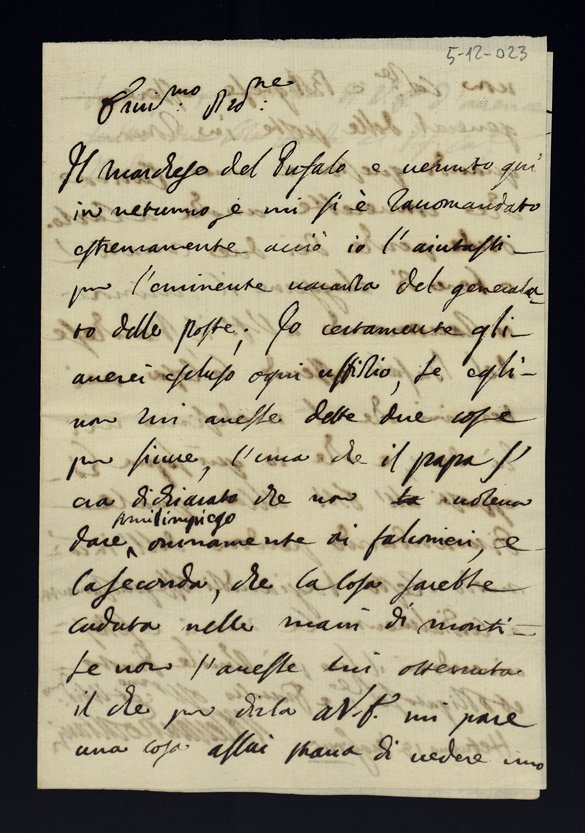 5-12-023
Emi.mo Prone:
Il marchese del Bufalo e venuto qui
in neturno, e mi si è racomandato
estremamente acciò io l'aiutassi
per l'eminente vacanza del generala-
to delle poste; Io certamente gli-
averei escluso ogni uffitio, se egli-
non mi avesse dette due cose
per sicure, l'una che il papa s'
era dichiarato che non ta voleva
dare simil impiego omninamente ai falconieri, e
la seconda, che la cosa sarebbe
caduta nelle mani di monti-
se non l'avesse lui ottenuta
il che per dirla a V.E. mi pare
una cosa assai strana di vedere uno